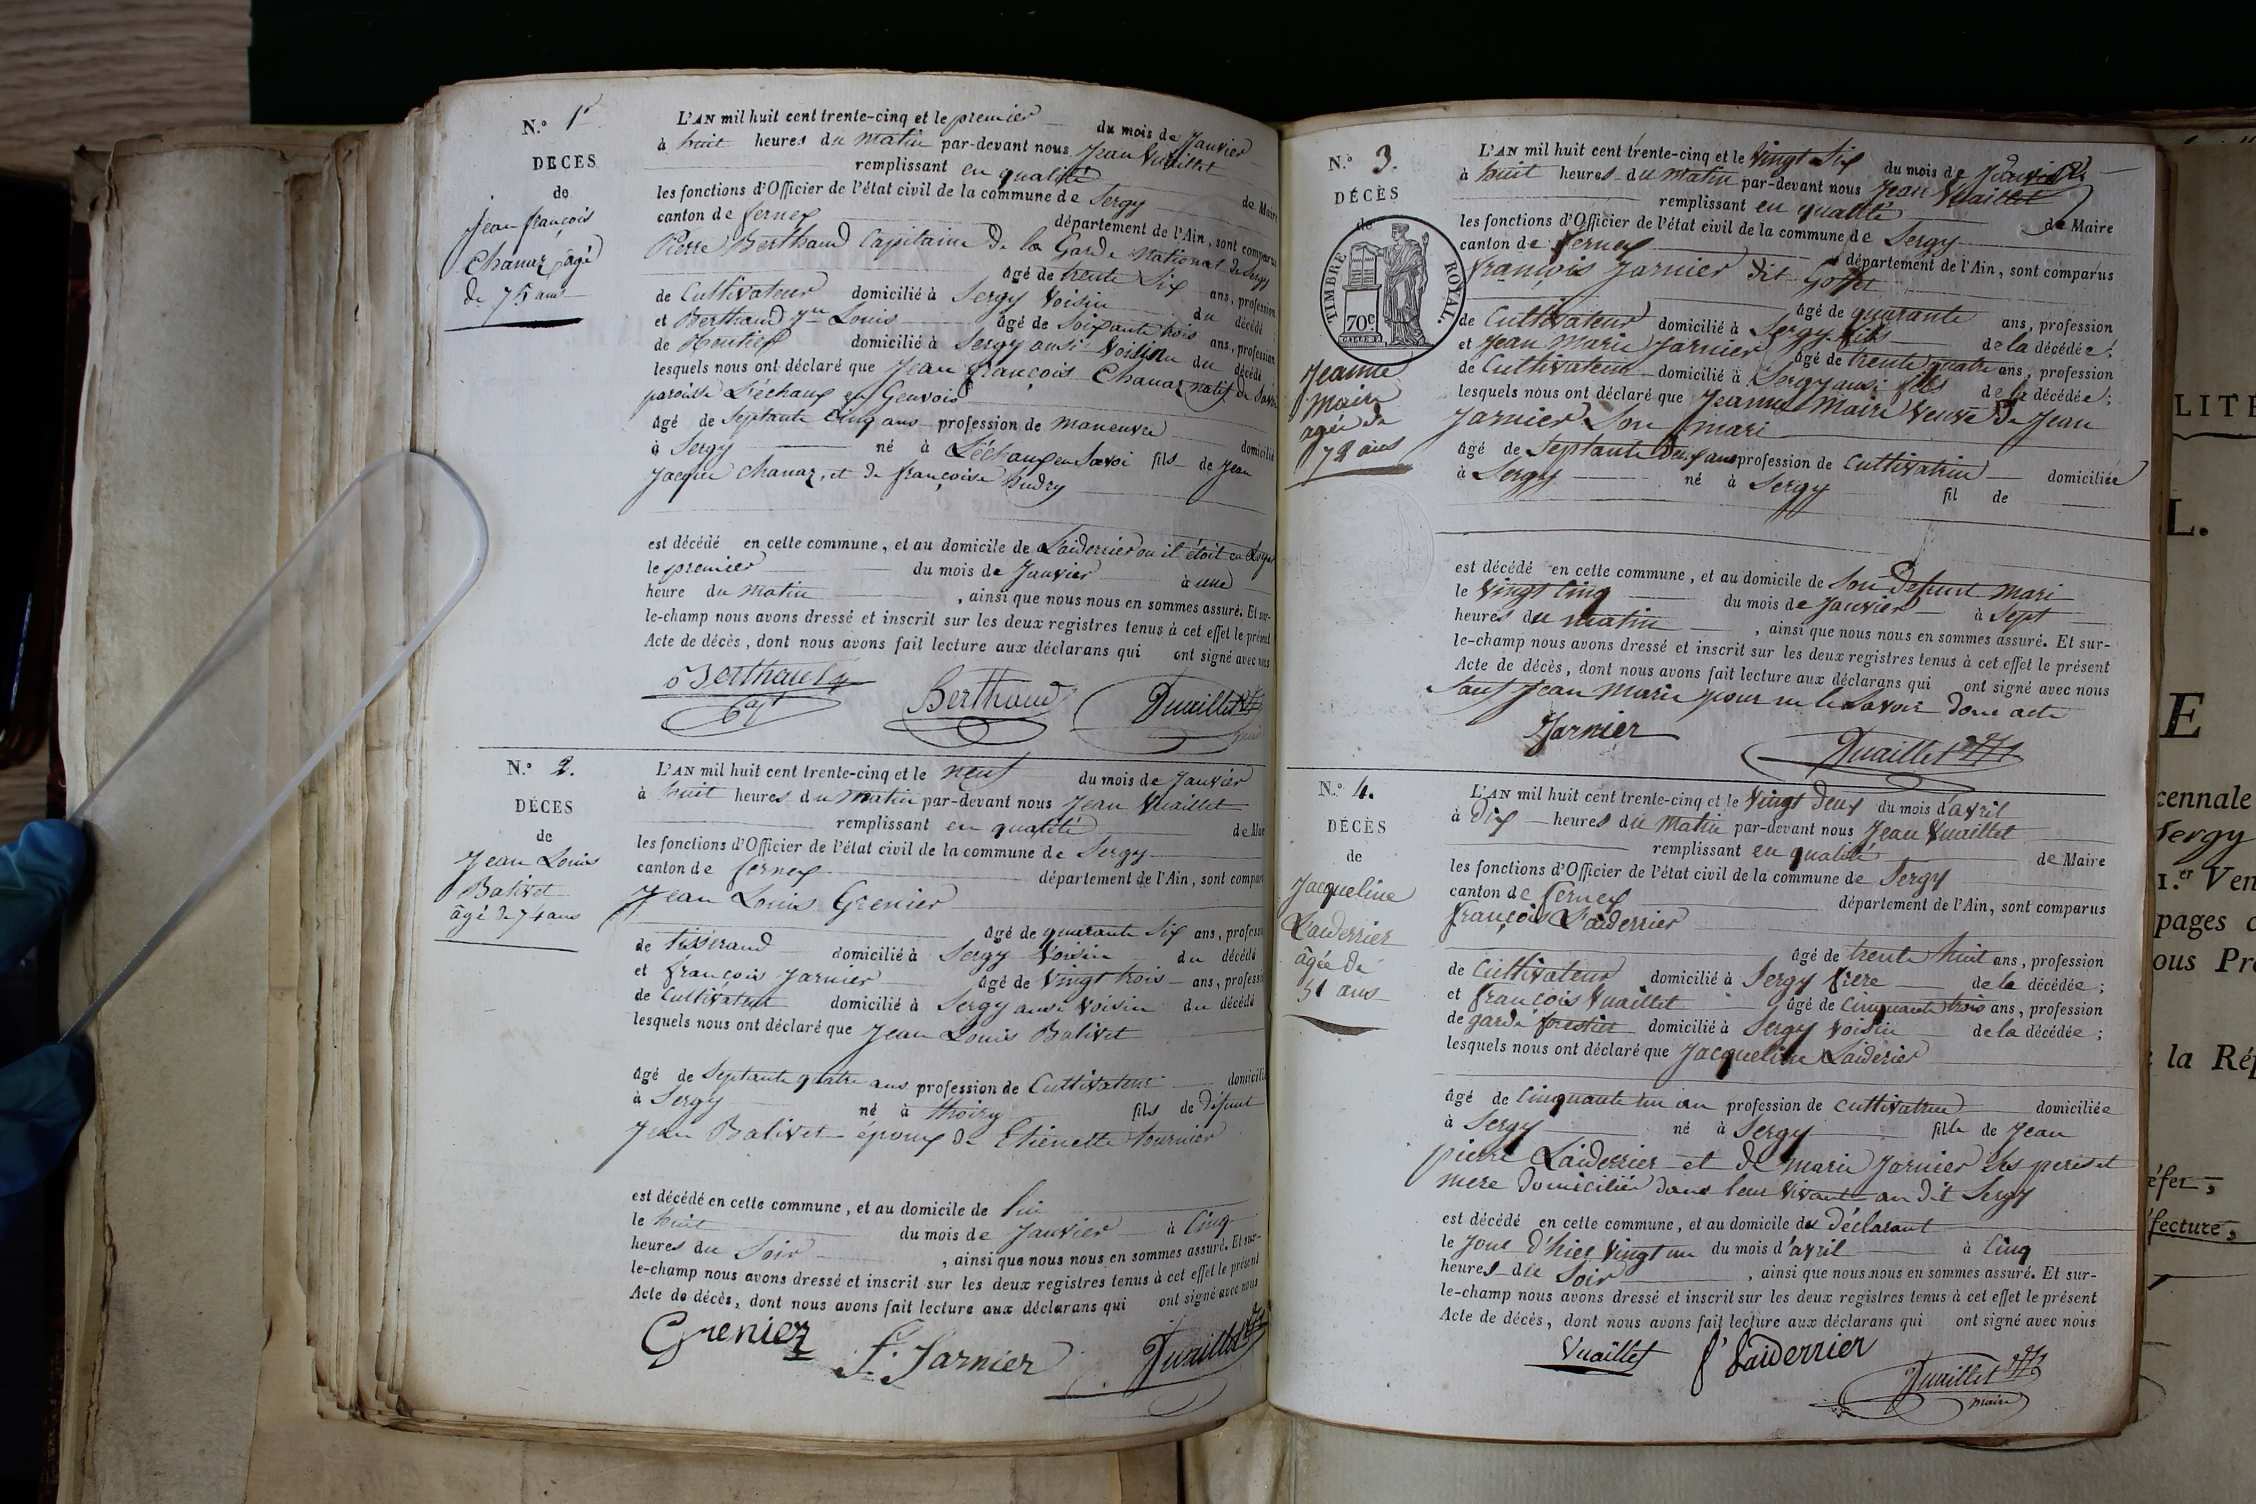 N.° 1r
DÉCES
de
Jean françois
Chanaz âgé
de 75 ans
L'AN mil huit cent trente-cinq et le premier du mois de Janvier
à huit heures du matin par-devant nous Jean Vuaillet
remplissant en qualité de Maire
les fonctions d'Officier de l'état civil de la commune de Sergy
canton de ferney département de l'Ain, sont comparus
Pierre Berthaud Capitaine De la Garde National de Sergy
âgé de trente Six ans, profession
de Cultivateur domicilié à Sergy Voisin du décédé
et Berthaud Louis âgé de Soixante trois ans, profession
de Rentier domicilié à Sergy ausi Voisin du décédé
lesquels nous ont déclaré que Jean françois Chanaz natif de
paroisse L'échaux en Genvois
âgé de Septante Cinq ans profession de maneuvre domicilié
à Sergy né à L'échaux en Savoi fils de Jean
Jacque Chanaz, et de françoise Budry
est décédé en cette commune, et au domicile de Laiderrier ou il étoit en Loyer
le premier du mois de Janvier à une
heure du matin, ainsi que nous nous en sommes assuré. Et sur-
le-champ nous avons dressé et inscrit sur les deux registres tenus à cet effet le présent
Acte de décès, dont nous avons fait lecture aux déclarans qui ont signé avec nous
Berthaud Berthaud JVuaillet
N.° 2.
DÉCES
de
Jean Louis
Balivet
âgé de 74 ans
L'AN mil huit cent trente-cinq et le neuf du mois de Janvier
à huit heures du matin par-devant nous Jean Vuaillet
remplissant en qualité de Maire
les fonctions d'Officier de l'état civil de la commune de Sergy
canton de ferney département de l'Ain, sont comparus
Jean Louis Grenier
âgé de quarante Six ans, profession
de tisserand domicilié à Sergy Voisin du décédé
et François Jarnier âgé de Vingt trois ans, profession
de Cultivateur domicilié à Sergy ausi Voisin du décédé
lesquels nous ont déclaré que Jean Louis Balivet
âgé de Septante quatre ans profession de Cultivateur domicilié
à Sergy né à thoiry fils de défunt
Jean Balivet époux de Etienette tournier
est décédé en cette commune, et au domicile de lui
le huit du mois de Janvier à Cinq
heures du Soir, ainsi que nous nous en sommes assuré. Et sur-
le-champ nous avons dressé et inscrit sur les deux registres tenus à cet effet le présent
Acte de décès, dont nous avons fait lecture aux déclarans qui ont signé avec nous
Grenier F. Jarnier JVuaillet
N.° 3.
DÉCÈS
de
TIMBRE ROYAL.
70c
Jeanne
Maire
agée de
72 ans
L'AN mil huit cent trente-cinq et le Vingt Six du mois de Janvier
à huit heures du matin par-devant nous Jean Vuaillet
remplissant en qualité de Maire
les fonctions d'Officier de l'état civil de la commune de Sergy
canton de ferney département de l'Ain, sont comparus
françois Jarnier dit
âgé de quarante ans, profession
de Cultivateur domicilié à Sergy fils de la décédée;
et Jean Marie Jarnier âgé de trente quatre ans, profession
de Cultivateur domicilié à Sergy ausi fils de la décédée;
lesquels nous ont déclaré que Jeanne Maire Veuve de Jean
Jarnier Son mari
âgé de Septante Deux ans profession de Cultivatrice domiciliée
à Sergy né à Sergy fil de
est décédé en cette commune, et au domicile de Son Défunt mari
le Vingt Cinq du mois de Janvier à Sept
heures du matin, ainsi que nous nous en sommes assuré. Et sur-
le-champ nous avons dressé et inscrit sur les deux registres tenus à cet effet le présent
Acte de décès, dont nous avons fait lecture aux déclarans qui ont signé avec nous
Sauf Jean Marie pour ne le Savoir Dont acte
Jarnier JVuaillet
N.° 4.
DÉCÈS
de
Jacqueline
Laiderrier
âgée de
51 ans
L'AN mil huit cent trente-cinq et le Vingt Deux du mois d'avril
à Dix heures du Matin par-devant nous Jean Vuaillet
remplissant en qualité de Maire
les fonctions d'Officier de l'état civil de la commune de Sergy
canton de ferney département de l'Ain, sont comparus
françois Laiderrier
âgé de trente huit ans, profession
de Cultivateur domicilié à Sergy frere de la décédée;
et françois Vuaillet âgé de Cinquante trois ans, profession
de garde forestier domicilié à Sergy Voisin de la décédée;
lesquels nous ont déclaré que Jacqueline Laiderier
âgé de Cinquante un an profession de cultivatrice domiciliée
à Sergy né à Sergy fille de Jean
pierre Laiderrier et de marie Jarnier Ses peres et
mere Domicilier dans leur Vivante au dit Sergy
est décédé en cette commune, et au domicile du Déclarant
le Jour d'hier Vingt un du mois d'avril à Cinq
heures du Soir, ainsi que nous nous en sommes assuré. Et sur-
le-champ nous avons dressé et inscrit sur les deux registres tenus à cet effet le présent
Acte de décès, dont nous avons fait lecture aux déclarans qui ont signé avec nous
Vuaillet f Laiderrier JVuaillet
maire
LITÉ
L.
E
cennale
Sergy
1.er Ven
pages c
ous Pré
la Rép
éfer,
fecture,